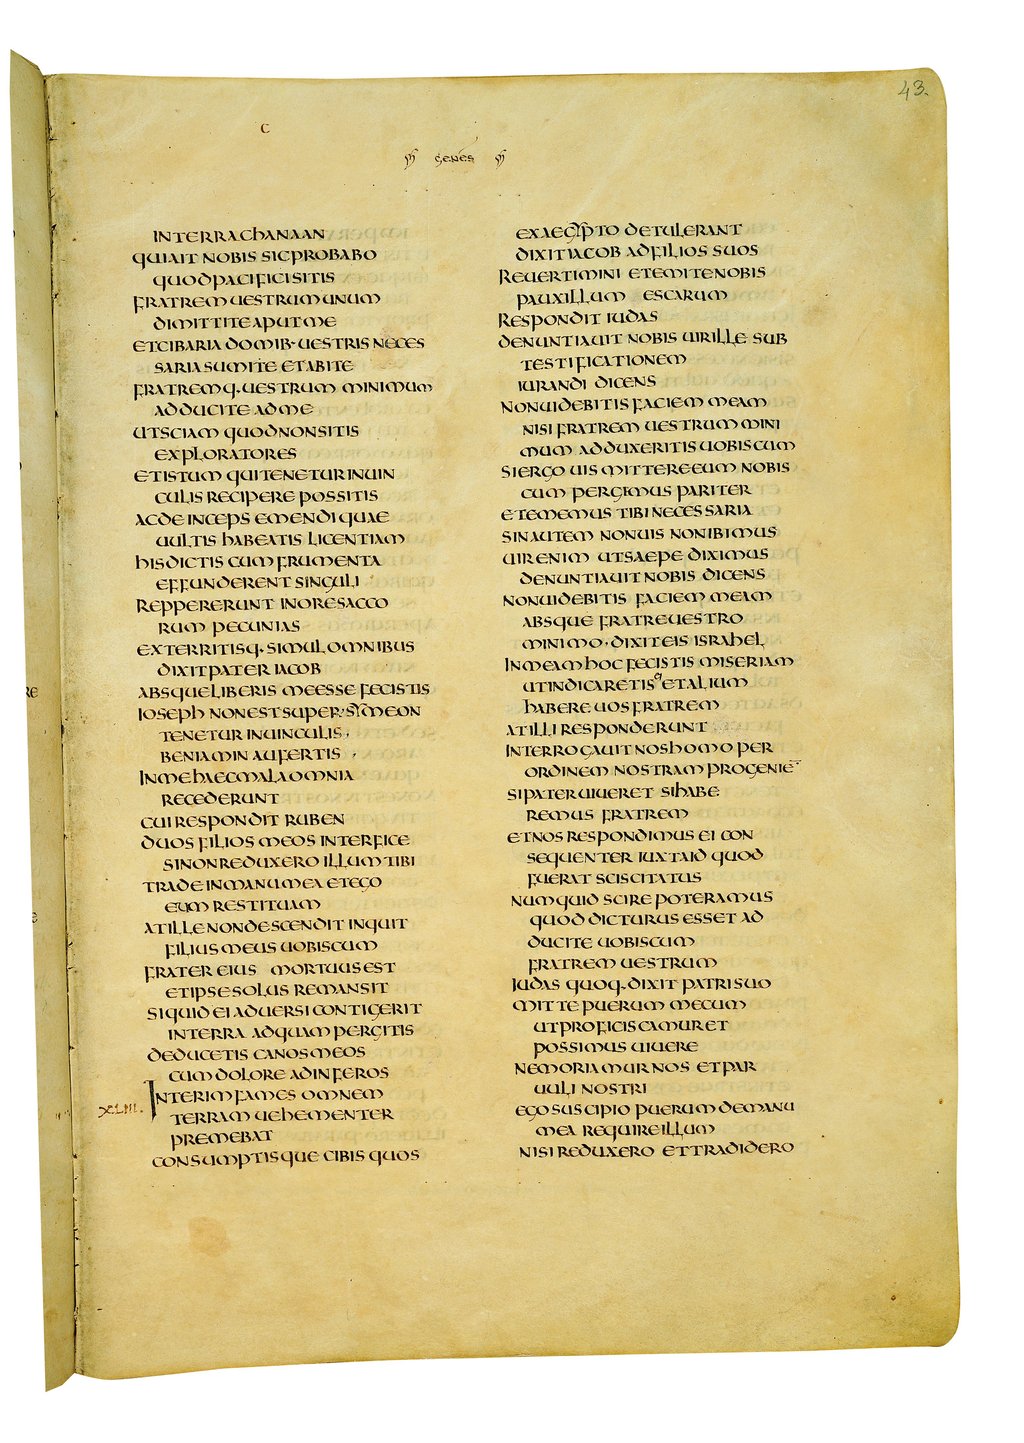 43.
C
GENES
INTERRACHANAAN
QUIAIT NOBIS SICPROBABO
QUODPACIFICISITIS
FRATREM UESTRUMUNUM
DIMITTITEAPUTME
ETCIBARIA DOMIB· UESTRIS NECES
SARIASUMITE ETABITE
FRATREMQ· UESTRUM MINIMUM
ADDUCITE ADME
UTSCIAM QUODNONSITIS
EXPLORATORES
ETISTUM QUITENETURINUIN
CULIS RECIPERE POSSITIS
ACDEINCEPS EMENDIQUAE
UULTIS HABEATIS LICENTIAM
HISDICTIS CUM FRUMENTA
EFFUNDERENT SINGULI
REPPERERUNT INORESACCO
RUM PECUNIAS
EXTERRITISQ· SIMULOMNIBUS
DIXITPATER IACOB
ABSQUELIBERIS MEESSE FECISTIS
IOSEPH NONESTSUPER·SYMEON
TENETUR INUINCULIS
BENIAMIN AUFERTIS
INMEHAECMALAOMNIA
RECEDERUNT
CUIRESPONDIT RUBEN
DUOS FILIOS MEOS INTERFICE
SINONREDUXERO ILLUMTIBI
TRADEINMANUMEA ETEGO
EUM RESTITUAM
ATILLENONDESCENDIT INQUIT
FILIUSMEUS UOBISCUM
FRATER EIUS MORTUUSEST
ETIPSESOLUS REMANSIT
SIQUIDEIADUERSICONTIGERIT
INTERRA ADQUAMPERGITIS
DEDUCETIS CANOSMEOS
CUMDOLORE ADINFEROS
XLIII.
INTERIMFAMES OMNEM
TERRAM UEHEMENTER
PREMEBAT
CONSUMPTISQUE CIBIS QUOS
EXAEGYPTO DETULERANT
DIXITIACOB ADFILIOS SUOS
REUERTIMINI ETEMITENOBIS
PAUXILLUM ESCARUM
RESPONDIT IUDAS
DENUNTIAUIT NOBIS UIRILLE SUB
TESTIFICATIONEM
IURANDI DICENS
NONUIDEBITIS FACIEM MEAM
NISI FRATREM UESTRUMMINI
MUM ADDUXERITISUOBISCUM
SIERGO UIS MITTEREEUM NOBIS
CUM PERGIMUS PARITER
ETEMEMUS TIBINECESSARIA
SINAUTEM NONUIS NONIBIMUS
UIRENIM UTSAEPE DIXIMUS
DENUNTIAUIT NOBIS DICENS
NONUIDEBITIS FACIEM MEAM
ABSQUE FRATREUESTRO
MINIMO· DIXITEIS ISRAHEL
INMEAMHOC FECISTIS MISERIAM
UTINDICARETIS EI ETALIUM
HABERE UOS FRATREM
ATILLI RESPONDERUNT
INTERROGAUIT NOSHOMO PER
ORDINEM NOSTRAM PROGENIE¯
SIPATERUIUERET SIHABE
REMUS FRATREM
ETNOS RESPONDIMUS EI CON
SEQUENTER IUXTAID QUOD
FUERAT SCISCITATUS
NUMQUID SCIRE POTERAMUS
QUOD DICTURUS ESSET AD
DUCITE UOBISCUM
FRATREM UESTRUM
IUDAS QUOQ· DIXIT PATRISUO
MITTEPUERUM MECUM
UTPROFICISCAMURET
POSSIMUS UIUERE
NEMORIAMUR NOS ETPAR
UULI NOSTRI
EGOSUSCIPIO PUERUMDEMANU
MEA REQUIREILLUM
NISIREDUXERO ETTRADIDERO